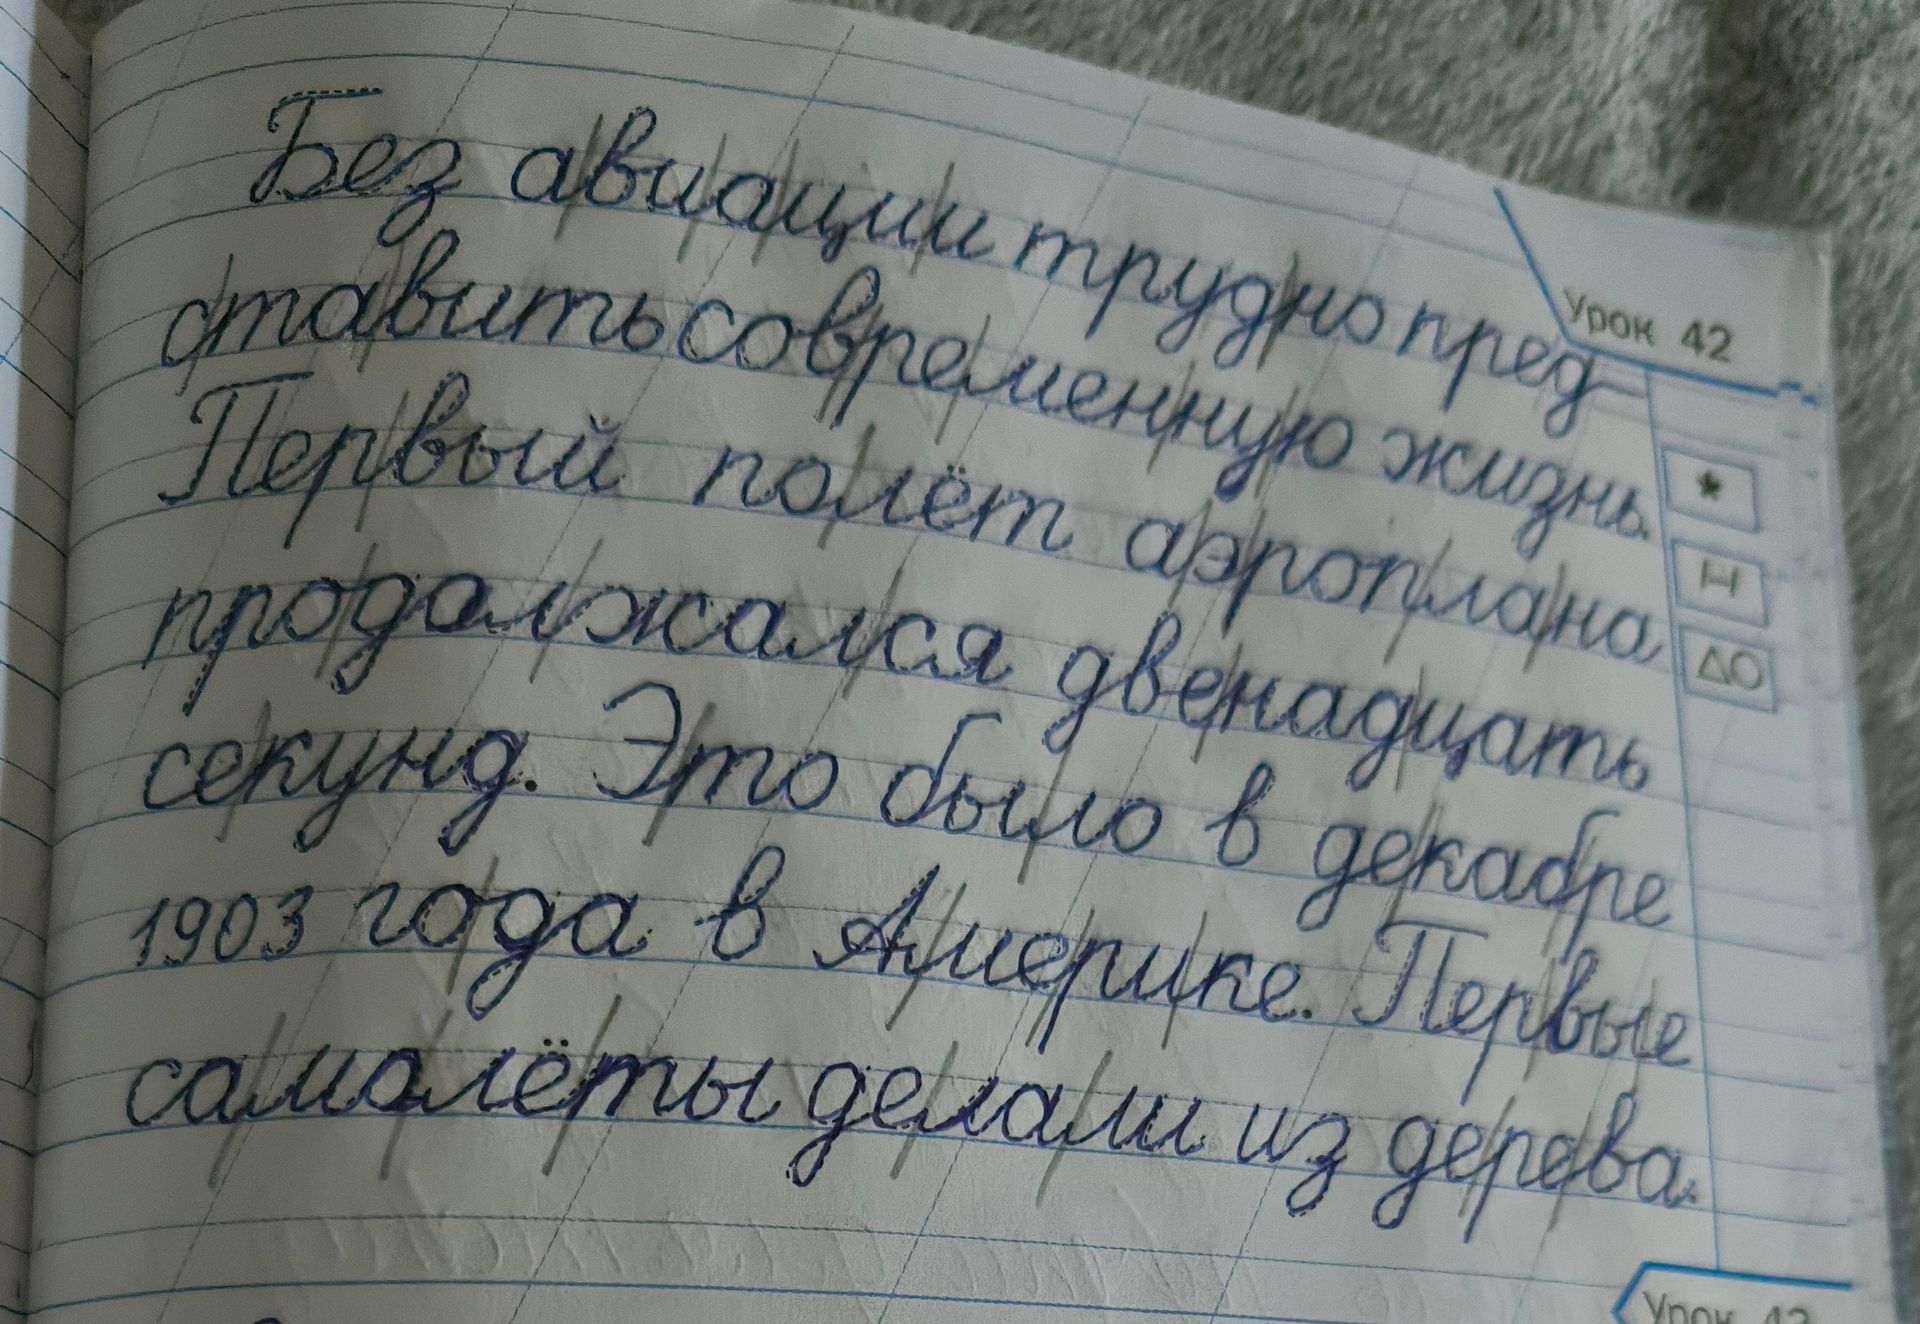 Без авиации трудно пред-
ставить современную жизнь.
Первый полёт аэроплана
продолжался двенадцать
секунд. Это было в декабре
1903 года в Америке. Первые
самолёты делали из дерева.
Урок 42
Урок 43